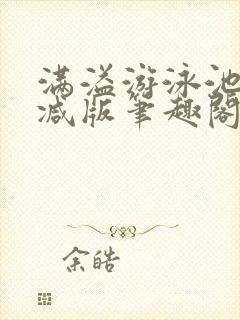 满溢游泳池
减版笔趣阁
余皓